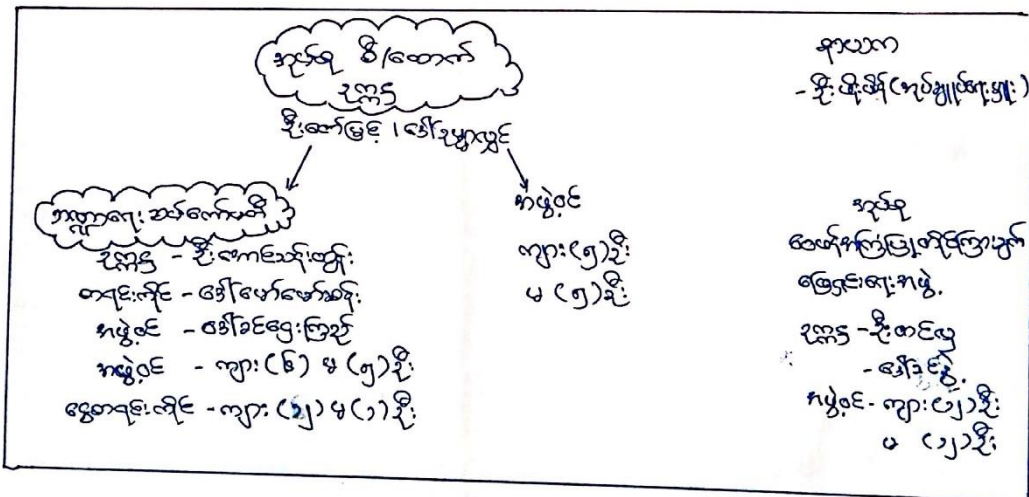 အုပ်စု စီ/ထောက်
ဥက္ကဋ္ဌ
ဦးဇော်မြင့် / ဒေါ်ဥမ္မာလွင်
နာယက
- ဦးဖိုးဖိန် (အုပ်ချုပ်ရေးမှူး)
ဘဏ္ဍာရေး ဆပ်ကော်မတီ
ဥက္ကဋ္ဌ - ဦးအောင်သန်းထွန်း
စာရင်းကိုင် - ဒေါ်မော်မော်ဆန်း
အဖွဲ့ဝင် - ဒေါ်ခင်ဌေးကြည်
အဖွဲ့ဝင် - ကျား (၆) မ (၅) ဦး
ငွေစာရင်းကိုင် - ကျား (၁၂) မ (၁) ဦး
အဖွဲ့ဝင်
ကျား (၅) ဦး
မ (၅) ဦး
အုပ်စု
ဝေဖန်အကြံပြုတိုင်ကြားချက်
ဖြေရှင်းရေးအဖွဲ့
ဥက္ကဋ္ဌ - ဦးတင်လှ
- ဒေါ်ခင်နွဲ့
အဖွဲ့ဝင် - ကျား (၁၂) ဦး
မ (၁၂) ဦး